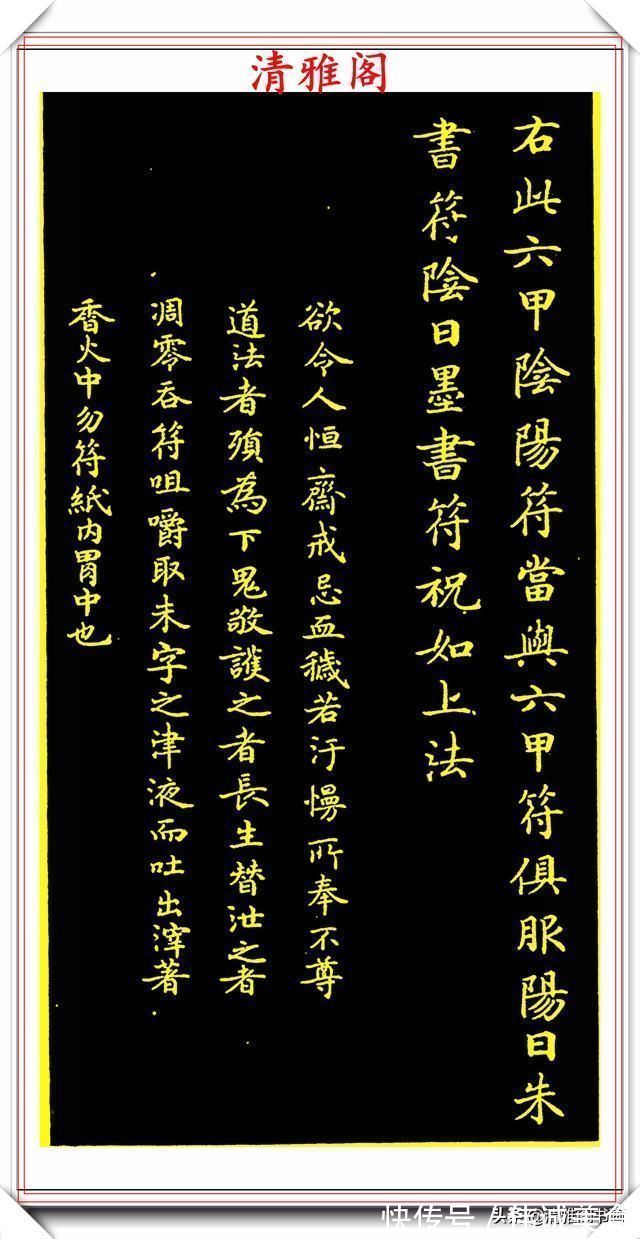 清雅阁
右此六甲陰陽符當與六甲符俱服陽日朱
書符陰日墨書符祝如上法
欲令人恒齋戒忌血穢若汙慢所奉不尊
道法者須為下鬼敬護之者長生替泄之者
凋零吞符咀嚼取朱字之津液而吐出滓著
香火中勿符紙內胃中也